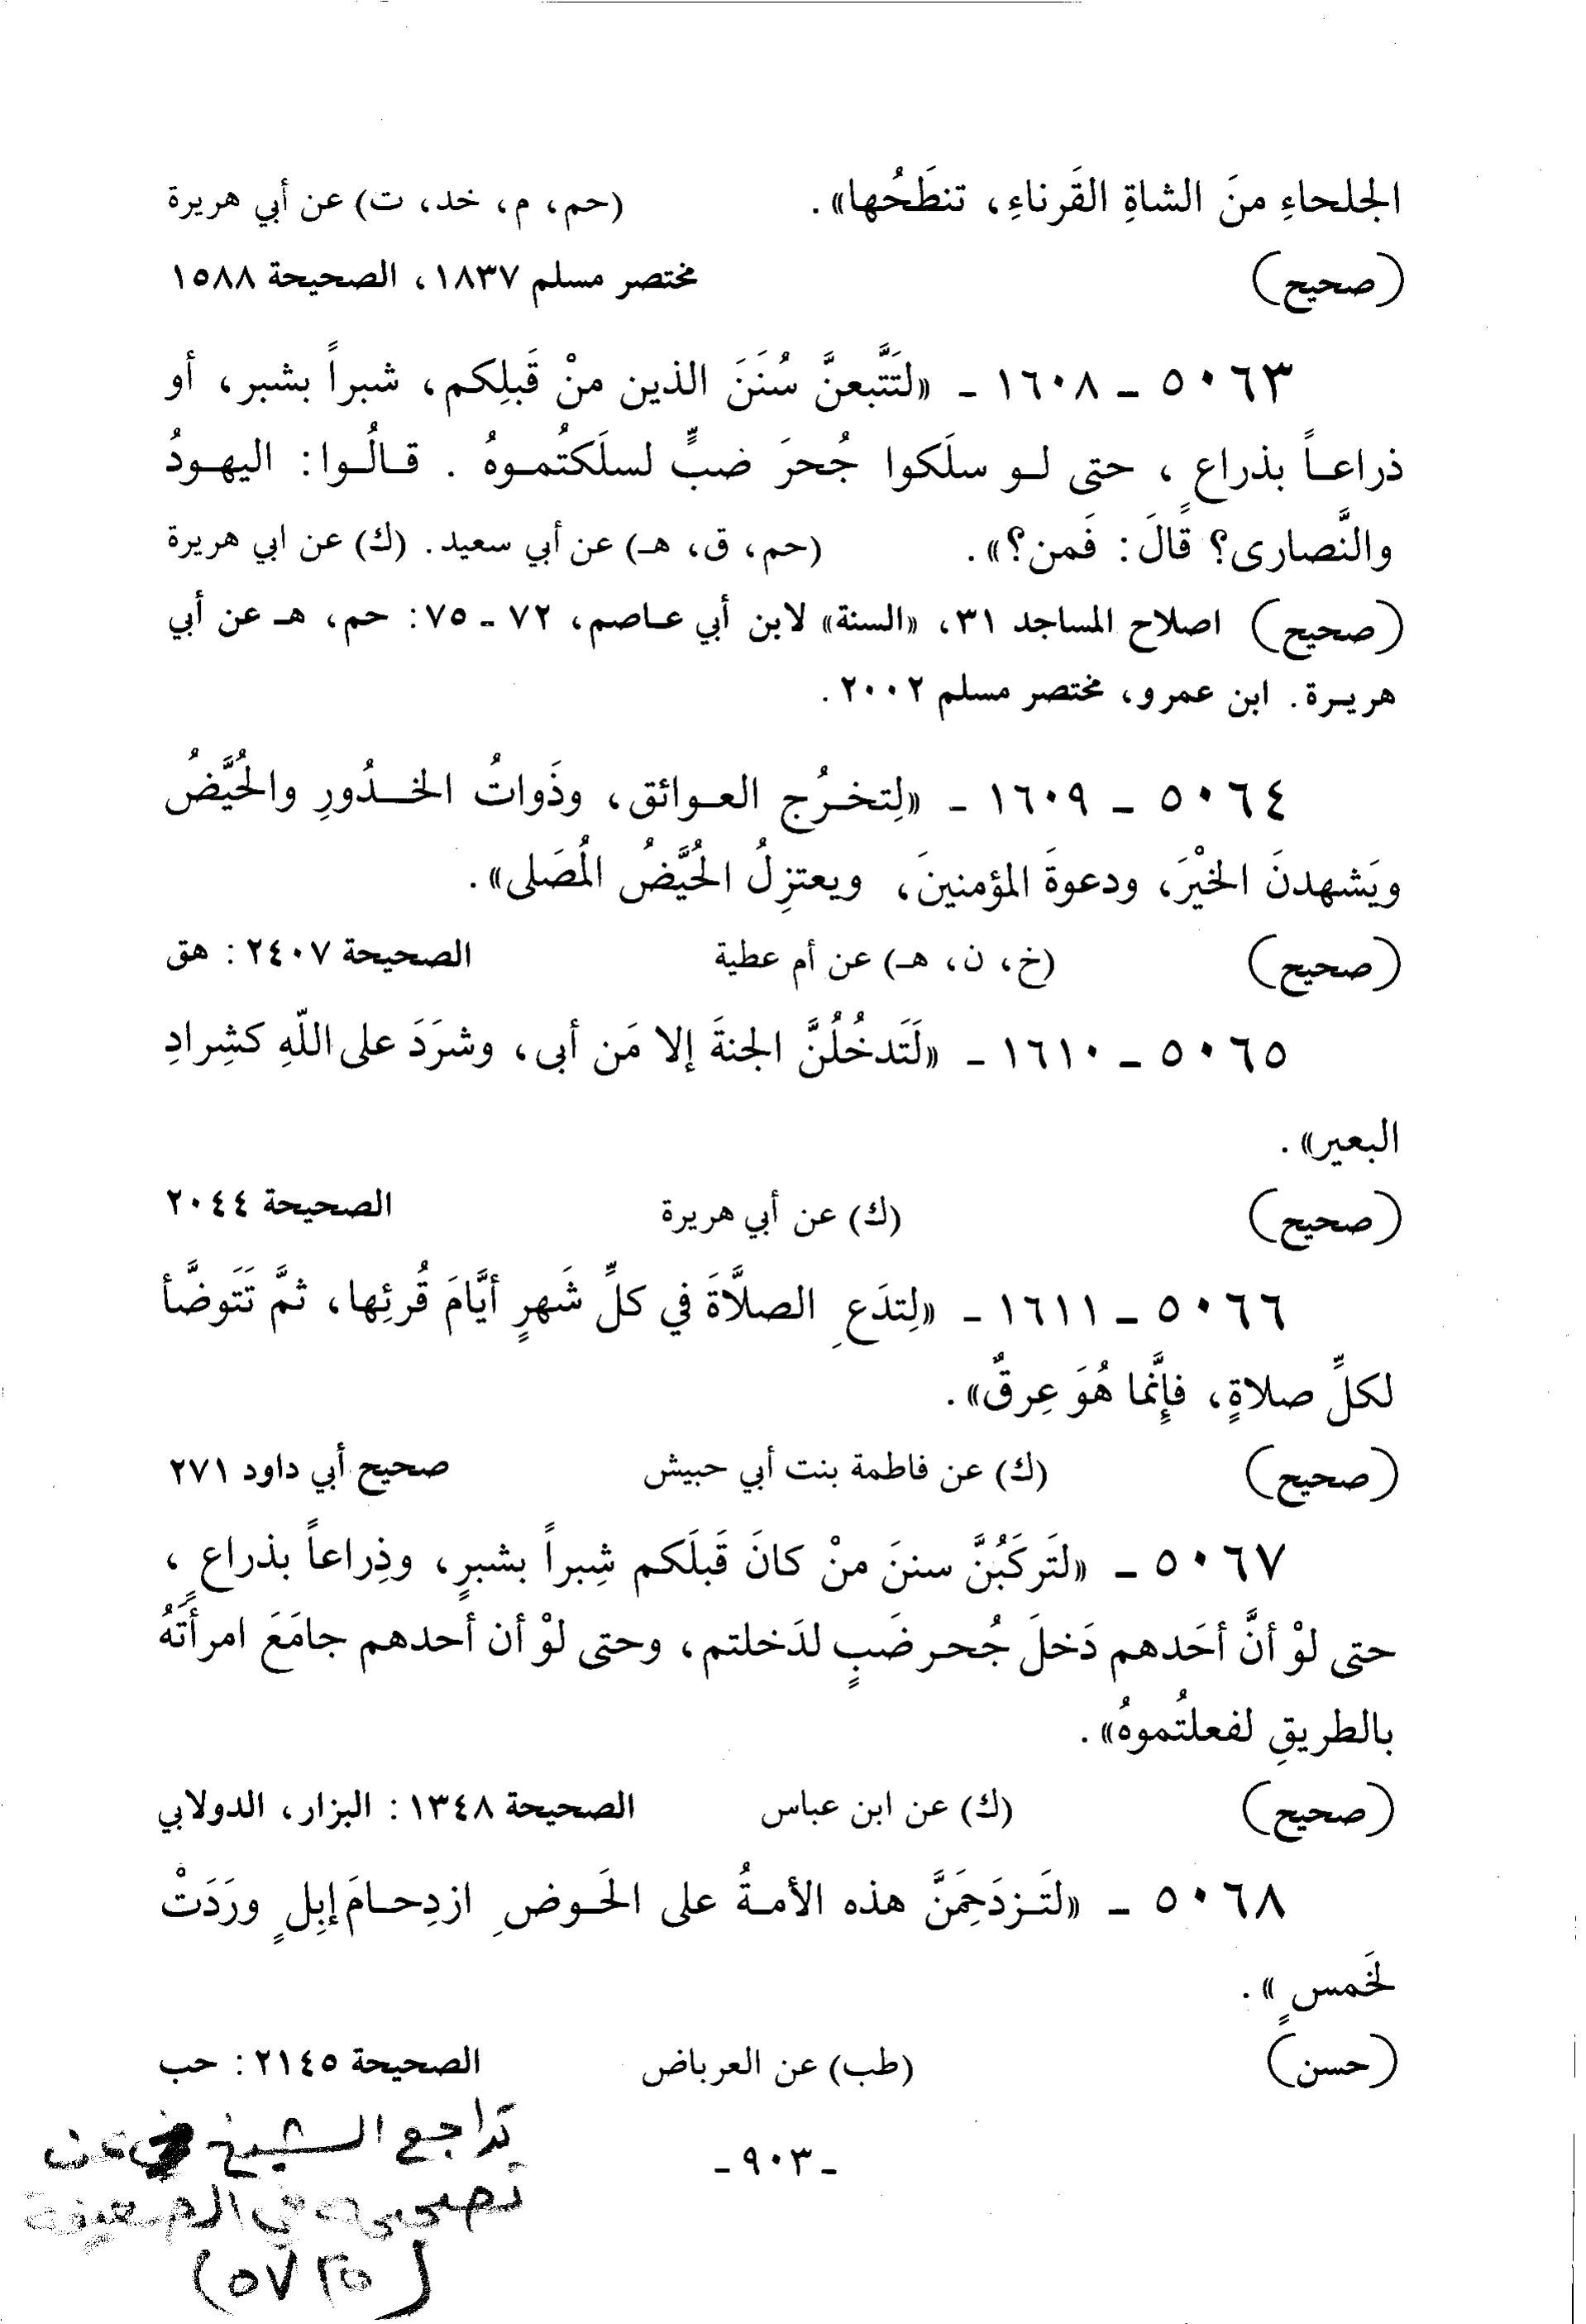 الجلحاءِ منَ الشاةِ القَرناءِ، تنطَحُها». (حم، م، خد، ت) عن أبي هريرة
(صحيح) مختصر مسلم ١٨٣٧، الصحيحة ١٥٨٨
٥٠٦٣ - ١٦٠٨ - «لَتَتَّبعنَّ سُنَنَ الذين منْ قَبلِكم، شبراً بشبر، أو
ذراعـاً بذراعٍ، حتى لـو سلَكوا جُحرَ ضبٍّ لسلَكتُمـوهُ . قـالُـوا: اليهـودُ
والنَّصارى؟ قالَ: فَمن؟». (حم، ق، هـ) عن أبي سعيد. (ك) عن ابي هريرة
(صحيح) اصلاح المساجد ٣١، «السنة» لابن أبي عـاصم، ٧٢ - ٧٥: حم، هـ عن أبي
هريـرة. ابن عمرو، مختصر مسلم ٢٠٠٢.
٥٠٦٤ - ١٦٠٩ - «لِتخـرُج العـوائق، وذَواتُ الخـدُورِ والحُيَّضُ
ويَشهدنَ الخيْرَ، ودعوةَ المؤمنينَ، ويعتزِلُ الحُيَّضُ المُصَلى».
(صحيح) (خ، ن، هـ) عن أم عطية الصحيحة ٢٤٠٧: هق
٥٠٦٥ - ١٦١٠ - «لَتَدخُلُنَّ الجنةَ إلا مَن أبى، وشرَدَ على اللّهِ كشِرادِ
البعير».
(صحيح) (ك) عن أبي هريرة الصحيحة ٢٠٤٤
٥٠٦٦ - ١٦١١ - «لِتدَعِ الصلاَّةَ في كلِّ شَهرٍ أيَّامَ قُرئِها، ثمَّ تَتَوضَّأ
لكلِّ صلاةٍ، فإنَّما هُوَ عِرقٌ».
(صحيح) (ك) عن فاطمة بنت أبي حبيش صحيح أبي داود ٢٧١
٥٠٦٧ - «لتَركَبُنَّ سننَ منْ كانَ قَبلَكم شِبراً بشبرٍ، وذِراعاً بذراعٍ،
حتى لوْ أنَّ أحَدهم دَخلَ جُحر ضَبٍ لدَخلتم، وحتى لوْ أن أحدهم جامَعَ امرأتَهُ
بالطريقِ لفعلتُموهُ».
(صحيح) (ك) عن ابن عباس الصحيحة ١٣٤٨: البزار، الدولابي
٥٠٦٨ - «لَتَـزدَحِمَنَّ هذه الأمـةُ على الحَـوضِ ازدِحـامَ إبِلٍ ورَدَتْ
لخَمسٍ».
(حسن) (طب) عن العرباض الصحيحة ٢١٤٥: حب
- ٩٠٣ -
تراجع الشيخ عن
تصحيحه في الضعيفة
(٥٧٢٥)